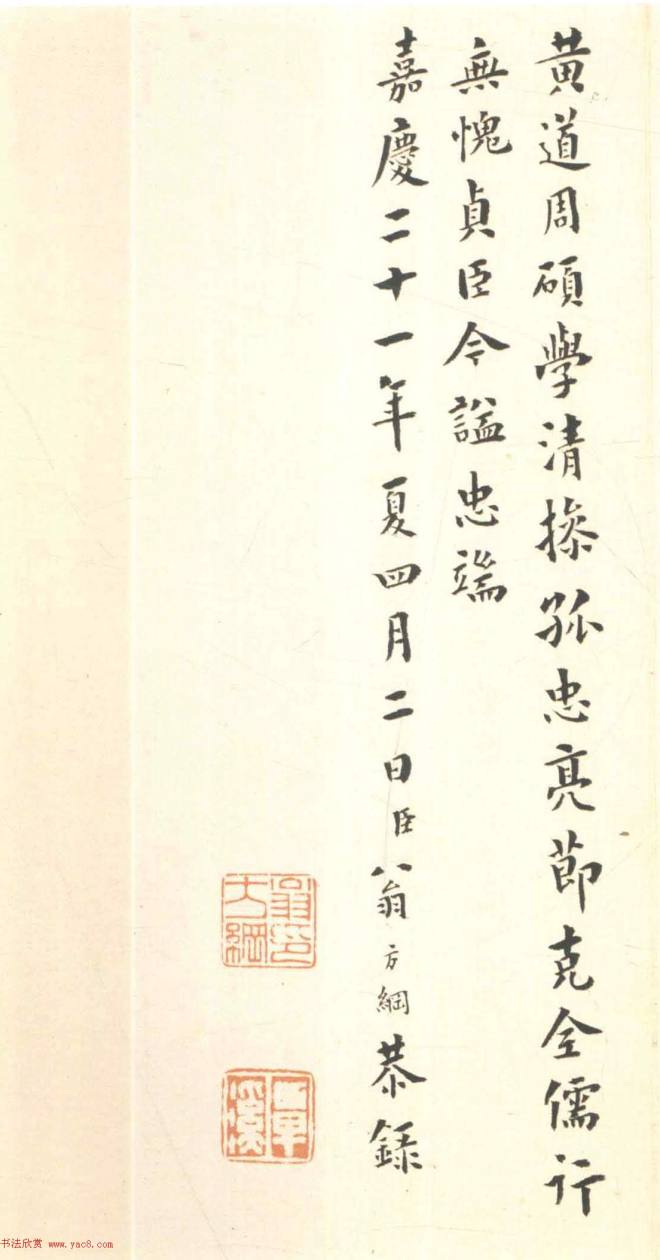 黃道周碩學清操孤忠亮節克全儒行
無愧貞臣今諡忠端
嘉慶二十一年夏四月二日臣翁方綱恭錄
覃溪
书法欣赏 www.yac8.com